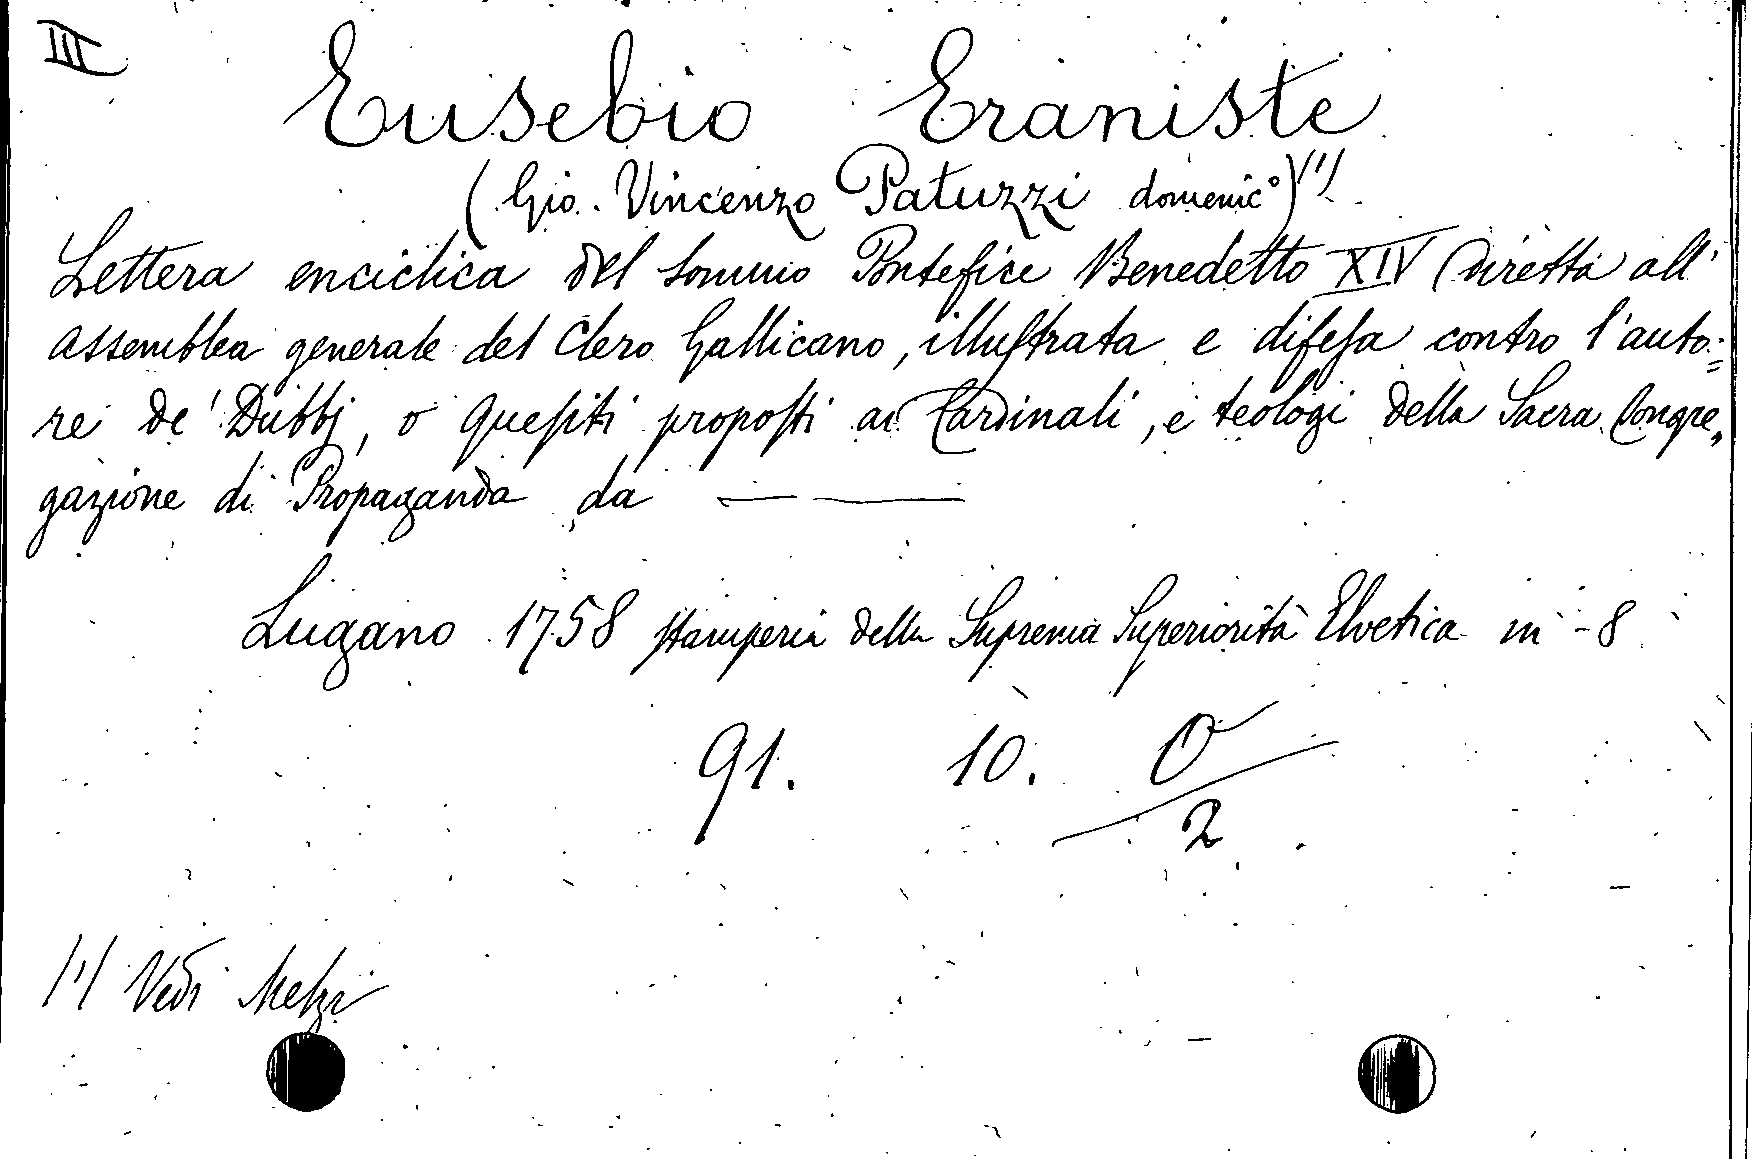 III
Eusebio Eraniste
(Gio. Vincenzo Patuzzi domenic°)(1)
Lettera enciclica del sommo Pontefice Benedetto XIV diretta all'
assemblea generale del Clero Gallicano, illuſtrata e difeſa contro l'auto=
re de' Dubbj, o queſiti propoſti ai Cardinali, e teologi della Sacra Congre„
gazione di Propaganda da — —
Lugano 1758 stamperia della Suprema Superiorità Elvetica in - 8
91. 10. O
2
(1) Vedi Melzi